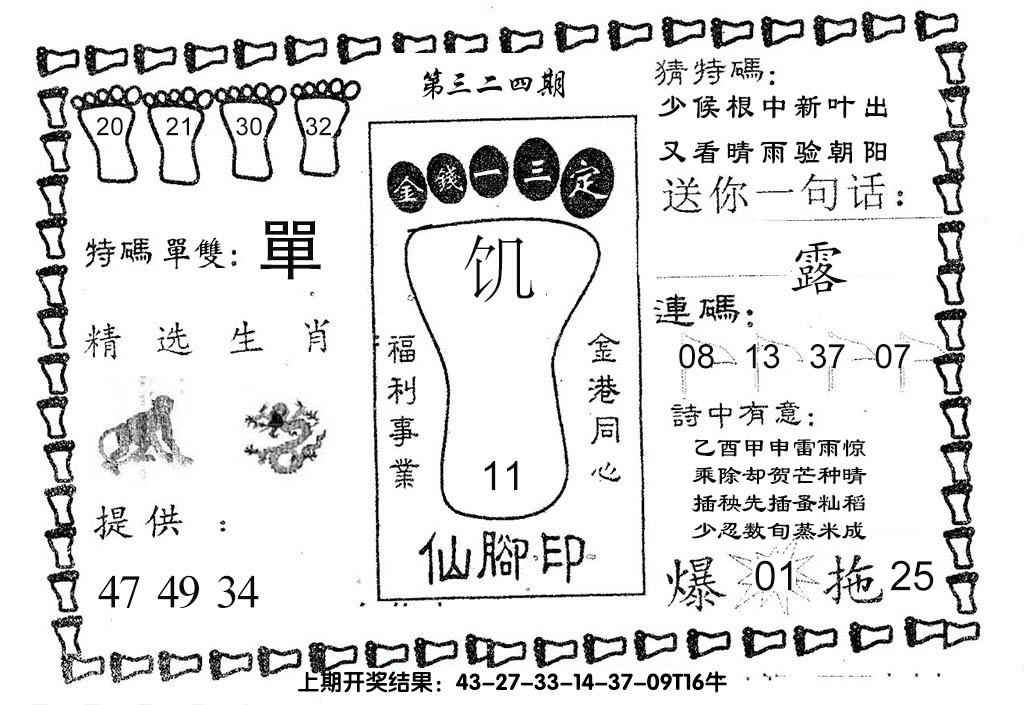 第三二四期
20 21 30 32
特碼單雙: 單
精选生肖
提供:
47 49 34
金錢一三定
饥
福利事業
金港同心
11
仙腳印
猜特碼:
少候根中新叶出
又看晴雨验朝阳
送你一句话:
露
連碼:
08 13 37 07
詩中有意:
乙酉甲申雷雨惊
乘除却贺芒种晴
插秧先插蚤籼稻
少忍数旬蒸米成
爆 01 拖 25
上期开奖结果: 43-27-33-14-37-09T16牛